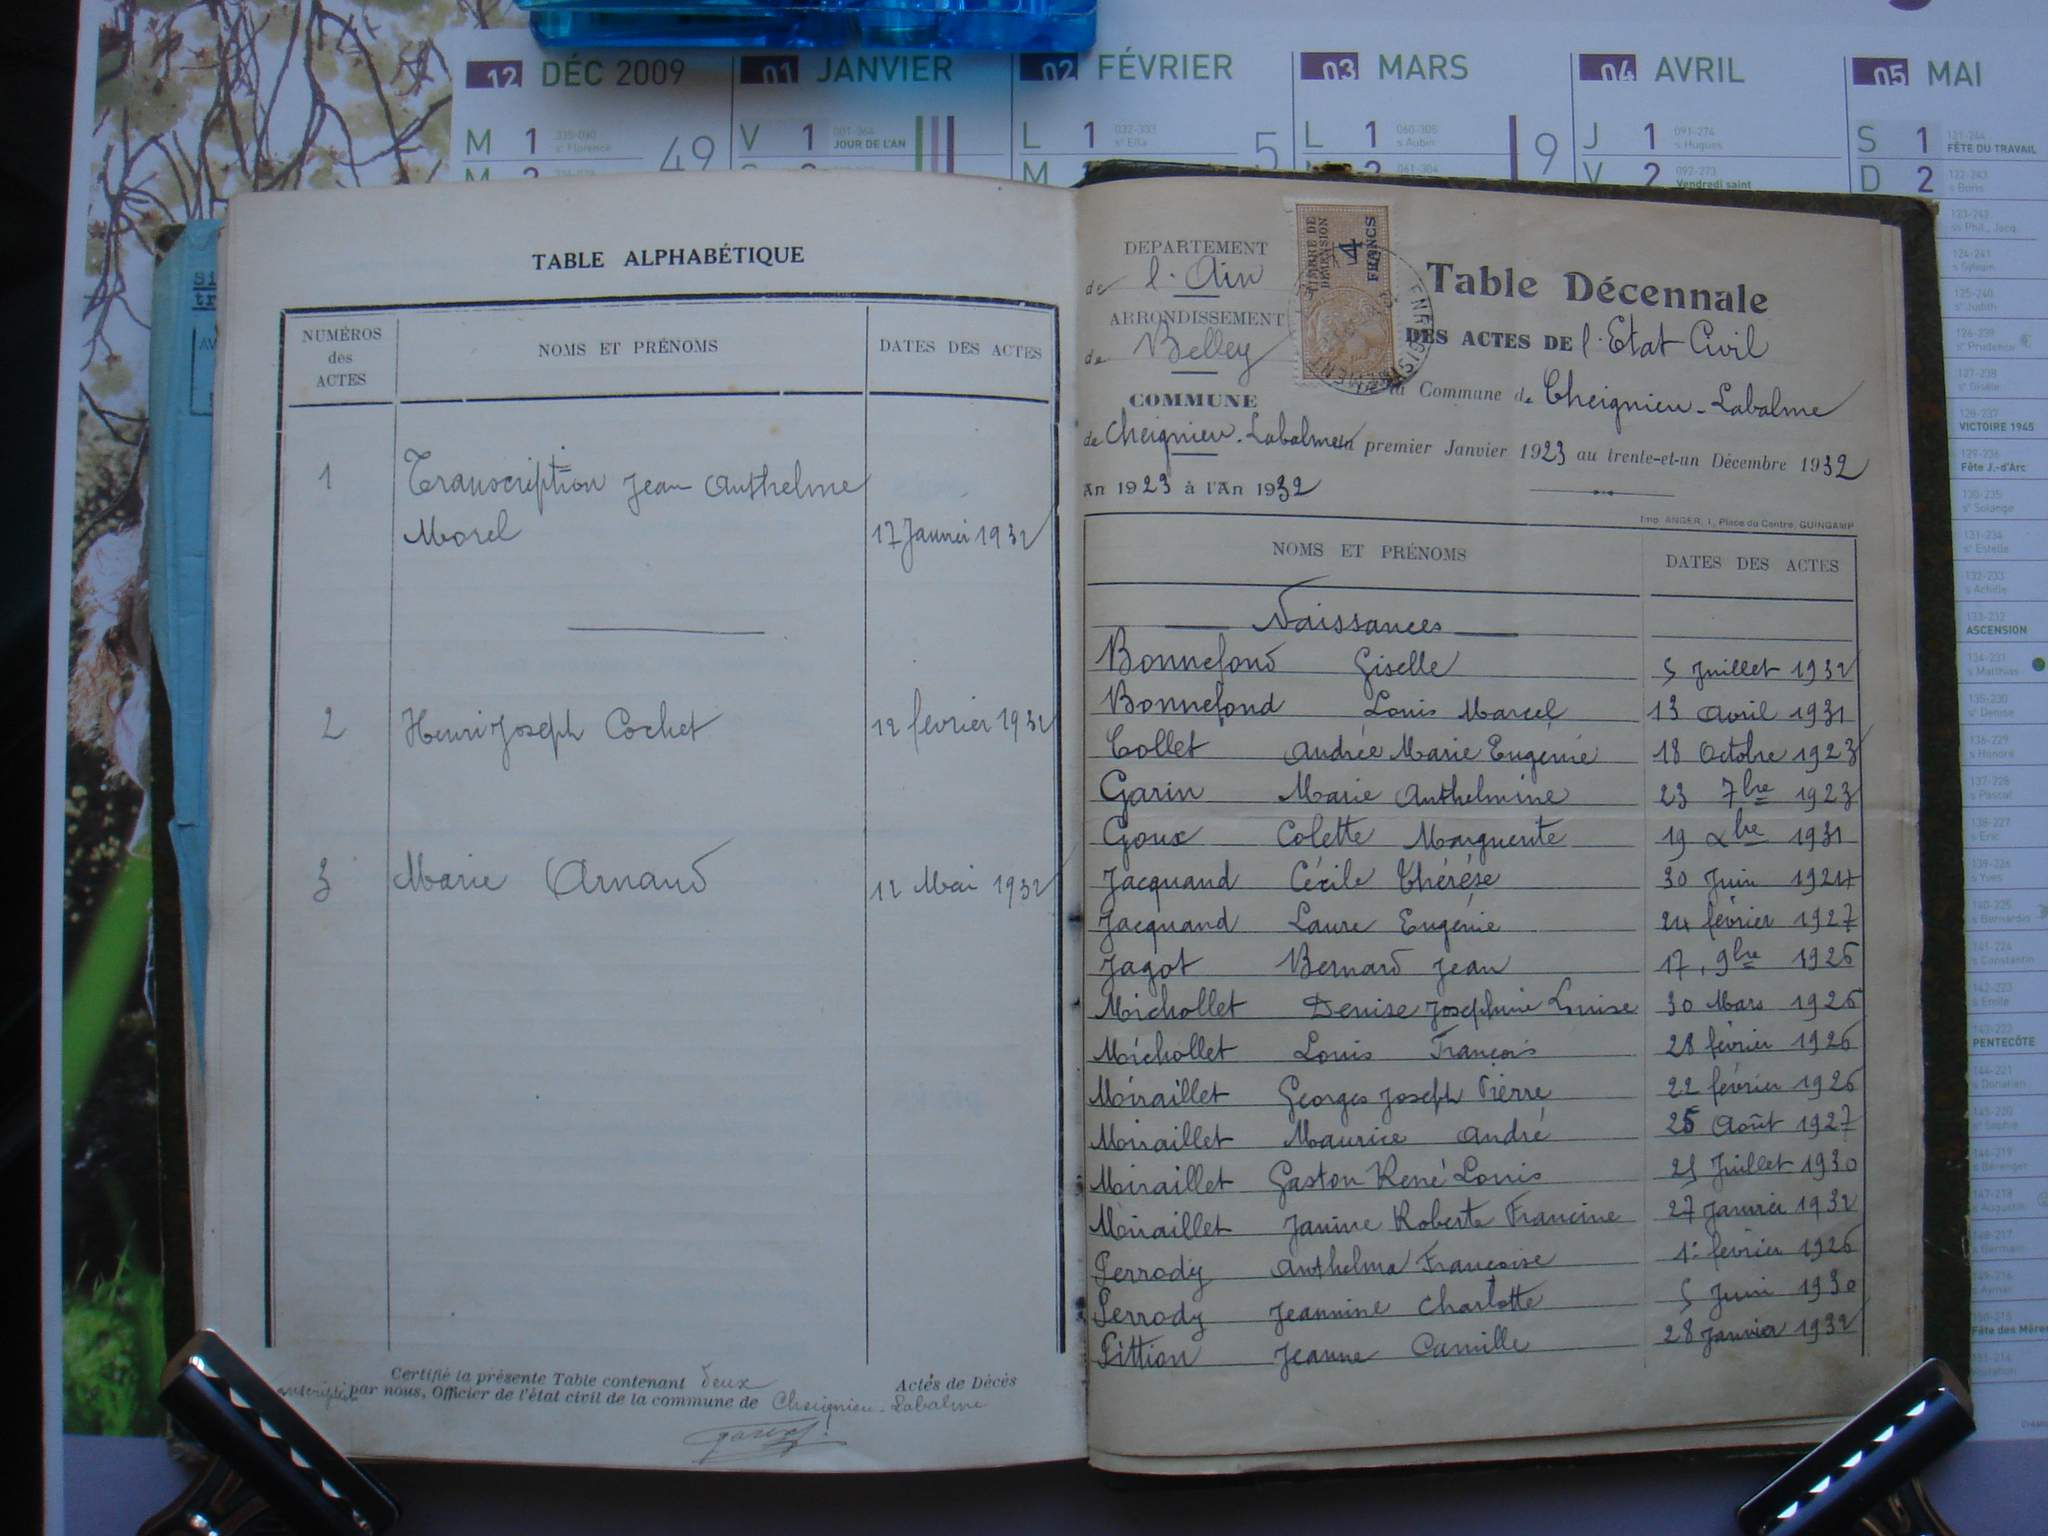 12 DÉC 2009
01 JANVIER
02 FÉVRIER
03 MARS
04 AVRIL
05 MAI
M 1 335-030 sᵉ Florence 49
V 1 001-364 JOUR DE L'AN
L 1 032-333 sᵉ Ella 5
L 1 060-305 s Aubin 9
J 1 091-274 s Hugues
S 1 121-244 FÊTE DU TRAVAIL
V 2 092-273 Vendredi saint
D 2 122-243 s Boris
TABLE ALPHABÉTIQUE
NUMÉROS des ACTES
NOMS ET PRÉNOMS
DATES DES ACTES
1 Transcription Jean Anthelme
Morel 17 Janvier 1932
2 Henri Joseph Cochet 12 février 1932
3 Marie Arnaud 12 Mai 1932
Certifié la présente Table contenant deux Actes de Décès
par nous, Officier de l'état civil de la commune de Cheignieu-Labalme
DEPARTEMENT
de l'Ain
ARRONDISSEMENT
de Belley
COMMUNE
de Cheignieu-Labalme
An 1923 à l'An 1932
TIMBRE DE DIMENSION
4 FRANCS
ENREGISTREMENT
Table Décennale
DES ACTES DE l'Etat Civil
la Commune de Cheignieu-Labalme
du premier Janvier 1923 au trente-et-un Décembre 1932
Imp. ANGER, 1, Place du Centre, GUINGAMP
NOMS ET PRÉNOMS
DATES DES ACTES
Naissances
Bonnefond Giselle 5 Juillet 1932
Bonnefond Louis Marcel 13 Avril 1931
Collet Andrée Marie Eugénie 18 Octobre 1923
Garin Marie Anthelmine 23 7bre 1923
Goux Colette Marguerite 19 Xbre 1931
Jacquand Cécile Thérèse 30 Juin 1924
Jacquand Laure Eugénie 24 février 1927
Jagot Bernard Jean 17, 9bre 1926
Michollet Denise Joséphine Louise 30 Mars 1926
Michollet Louis François 28 février 1926
Miraillet Georges Joseph Pierre 22 février 1926
Miraillet Maurice André 25 Août 1927
Miraillet Gaston René Louis 25 Juillet 1930
Miraillet Janine Roberte Francine 27 Janvier 1932
Perrody Anthelma Françoise 1er février 1926
Perrody Jeannine Charlotte 5 Juin 1930
Pittion Jeanne Camille 28 Janvier 1932
VICTOIRE 1945
Fête J.-d'Arc
ASCENSION
PENTECÔTE
Fête des Mères